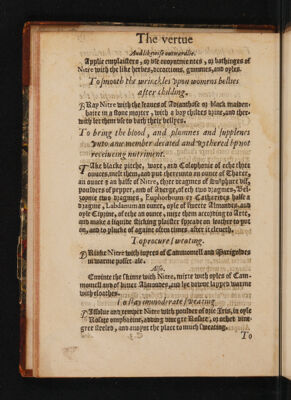 The vertue
And likewise outwardlie.
Applie emplaisters, or vse oyntmentes, or bathinges of
Nitre with the like herbes, decoctions, gummes, and oyles.
To smooth the wrinckles vpon womens bellies
after childing.
BRay Nitre with the leaues of Adianthos or black maiden-
haire in a stone morter, with a boy childes vrine, and ther-
with let them vse to bath their bellyes.
To bring the blood, and plumnes and supplenes
vnto anie member decaied and wythered by not
receiueing nutriment.
TAke blacke pitche, ware, and Colophonie of eche three
ounces, melt them, and put thereunto an ounce of
an ounce & an halfe of Nitre, three dragmes of Sulphure viue,
pouldres of pepper, and of Ginger, of ech two dragmes, Bel-
zoynie two dragmes, Euphorbium or Catherides halfe a
dragme, Labdanum an ounce, oyle of sweete Almondes, and
oyle Ciprine, of eche an ounce, mixe them according to Arte,
and make a liquide sticking plaister spreade on leather to put
on, and to plucke of againe often times after it cleueth.
To procure sweating.
DRinke Nitre with iuyces of Cammomell and Marigoldes
in warme posset ale.
Also.
Emoint the skinne with Nitre, mixte with oyles of Cam-
momell and of bitter Almondes, and lye downe lapped warme
with cloathes.
To stay immoderate sweating.
DIssolue and temper Nitre with poulder of drie Iris, in oyle
Rosate omphacine, adding vinegre Rosate, or other vine-
gre steeled, and anoynt the place to much sweating.
To